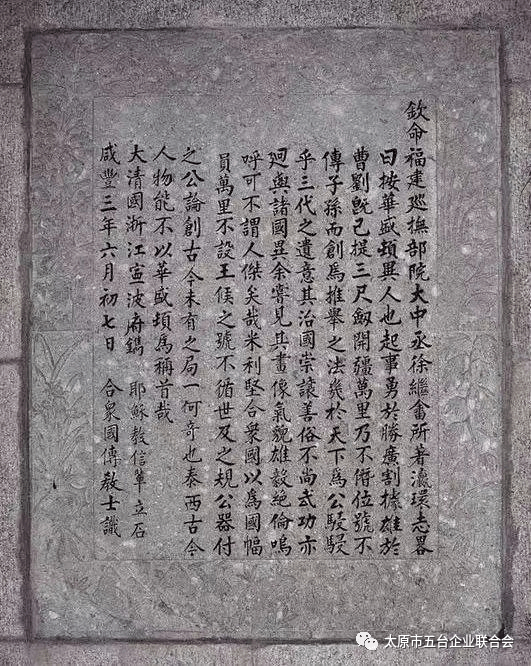 欽命福建廵撫部院大中丞徐繼畬所著瀛環志畧
曰按華盛頓異人也起事勇於勝廣割據雄於
曹劉既已提三尺劔開疆萬里乃不僭位號不
傳子孫而創為推舉之法幾於天下為公駸駸
乎三代之遺意其治國崇讓善俗不尚武功亦
廻與諸國異余嘗見其畫像氣貌雄毅絶倫嗚
呼可不謂人傑矣哉米利堅合衆國以為國幅
員萬里不設王侯之號不循世及之規公器付
之公論創古今未有之局一何奇也泰西古今
人物能不以華盛頓為稱首哉
大清國浙江寧波府鐫 耶穌教信輩立石
咸豐三年六月初七日 合衆國傳教士識
太原市五台企业联合会